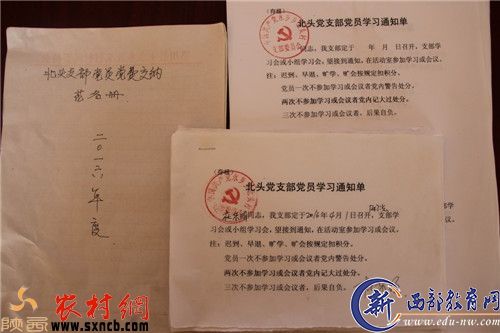 北头支部党员党费交纳
花名册
二〇一六年度
(存根)
北头党支部党员学习通知单
同志,我支部定于 年 月 日召开,支部学
习会或小组学习会,望接到通知,在活动室参加学习或会议。
注:迟到、早退、旷学、旷会按规定扣积分。
党员一次不参加学习或会议者党内警告处分。
两次不参加学习或会议者党内记大过处分。
三次不参加学习或会议者,后果自负。
(存根)
北头党支部党员学习通知单
同志,我支部定于2016年4月1日召开,支部学
习会或小组学习会,望接到通知,在活动室参加学习或会议。
注:迟到、早退、旷学、旷会按规定扣积分。
党员一次不参加学习或会议者党内警告处分。
两次不参加学习或会议者党内记大过处分。
三次不参加学习或会议者,后果自负。
陕西
农村網
www.sxncb.com
新西部教育网
www.edu-nw.com